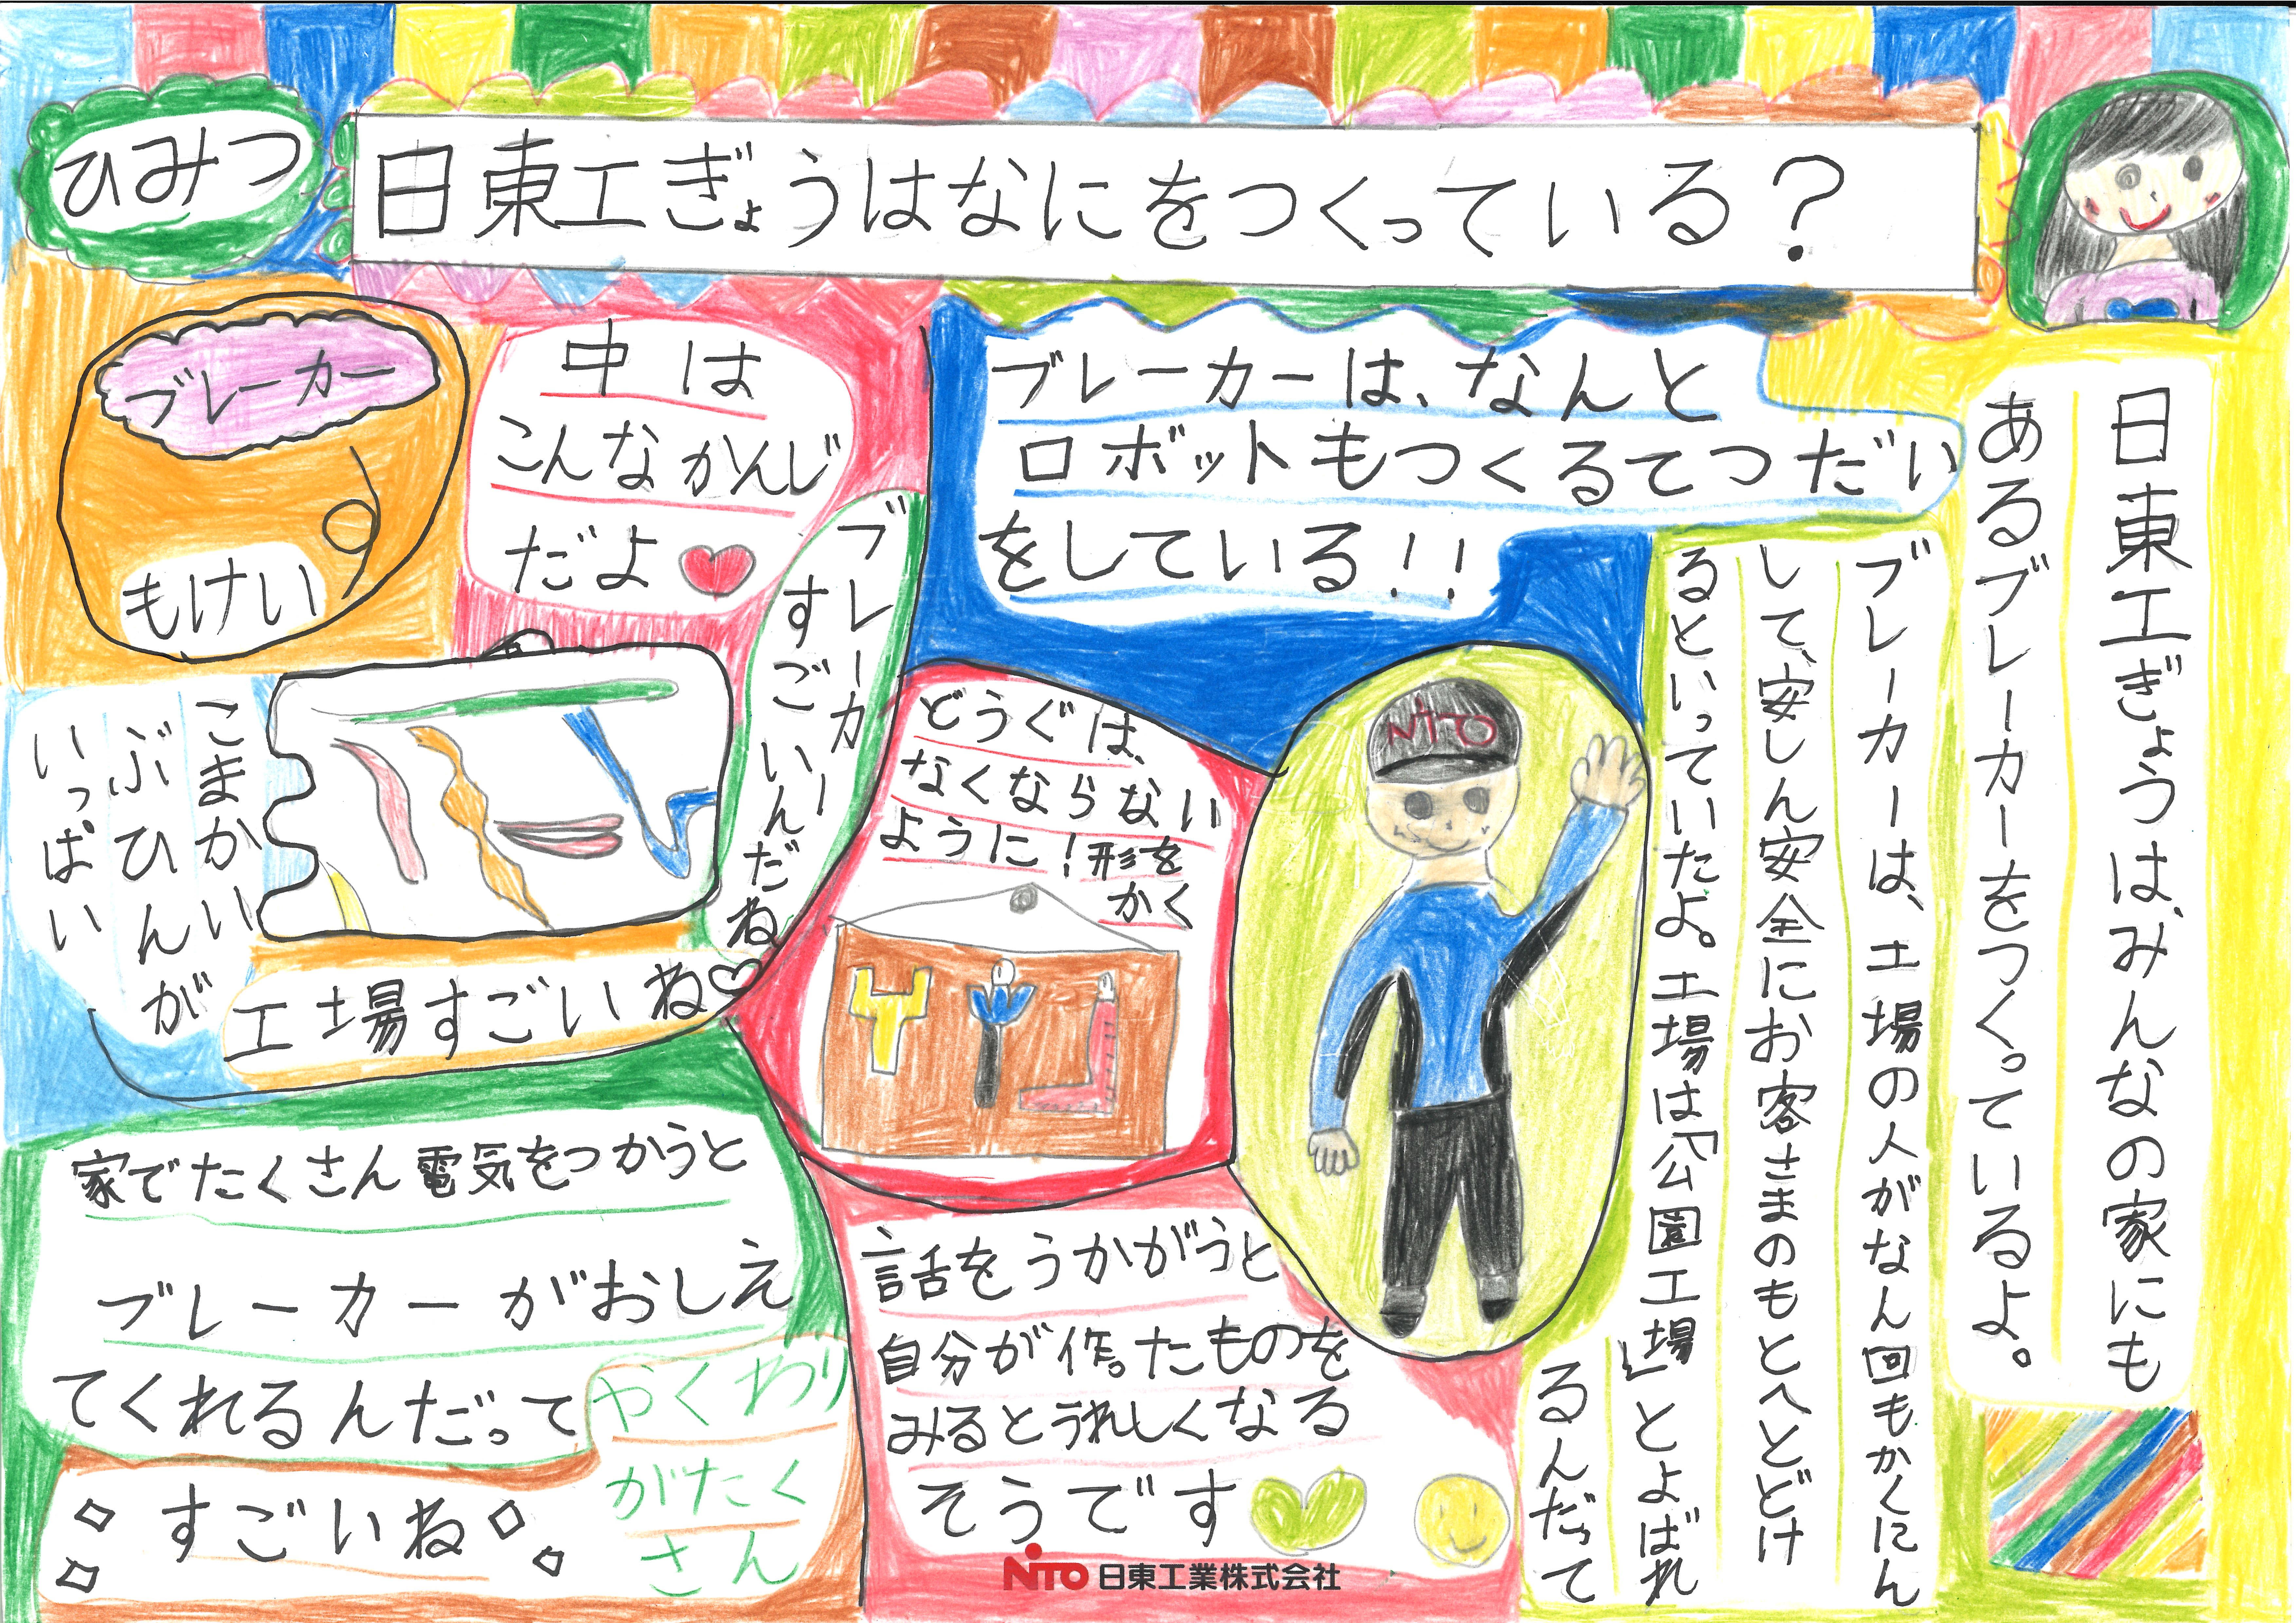 ひみつ
日東工ぎょうはなにをつくっている？
日東工ぎょうは、みんなの家にも
あるブレーカーをつくっているよ。
ブレーカーは、工場の人がなん回もかくにん
して、安しん安全にお客さまのもとへとどけ
るといっていたよ。工場は「公園工場」とよばれ
るんだって
ブレーカーは、なんと
ロボットもつくるてつだい
をしている!!
NiTO
中は
こんなかんじ
だよ
ブレーカー
もけい
ブレーカー
すごいんだね
こまかい
ぶひんが
いっぱい
工場すごいね
どうぐは、
なくならない
ように!形を
かく
家でたくさん電気をつかうと
ブレーカーがおしえ
てくれるんだって
やくわり
がたく
さん
すごいね
話をうかがうと
自分が作ったものを
みるとうれしくなる
そうです
NiTO 日東工業株式会社